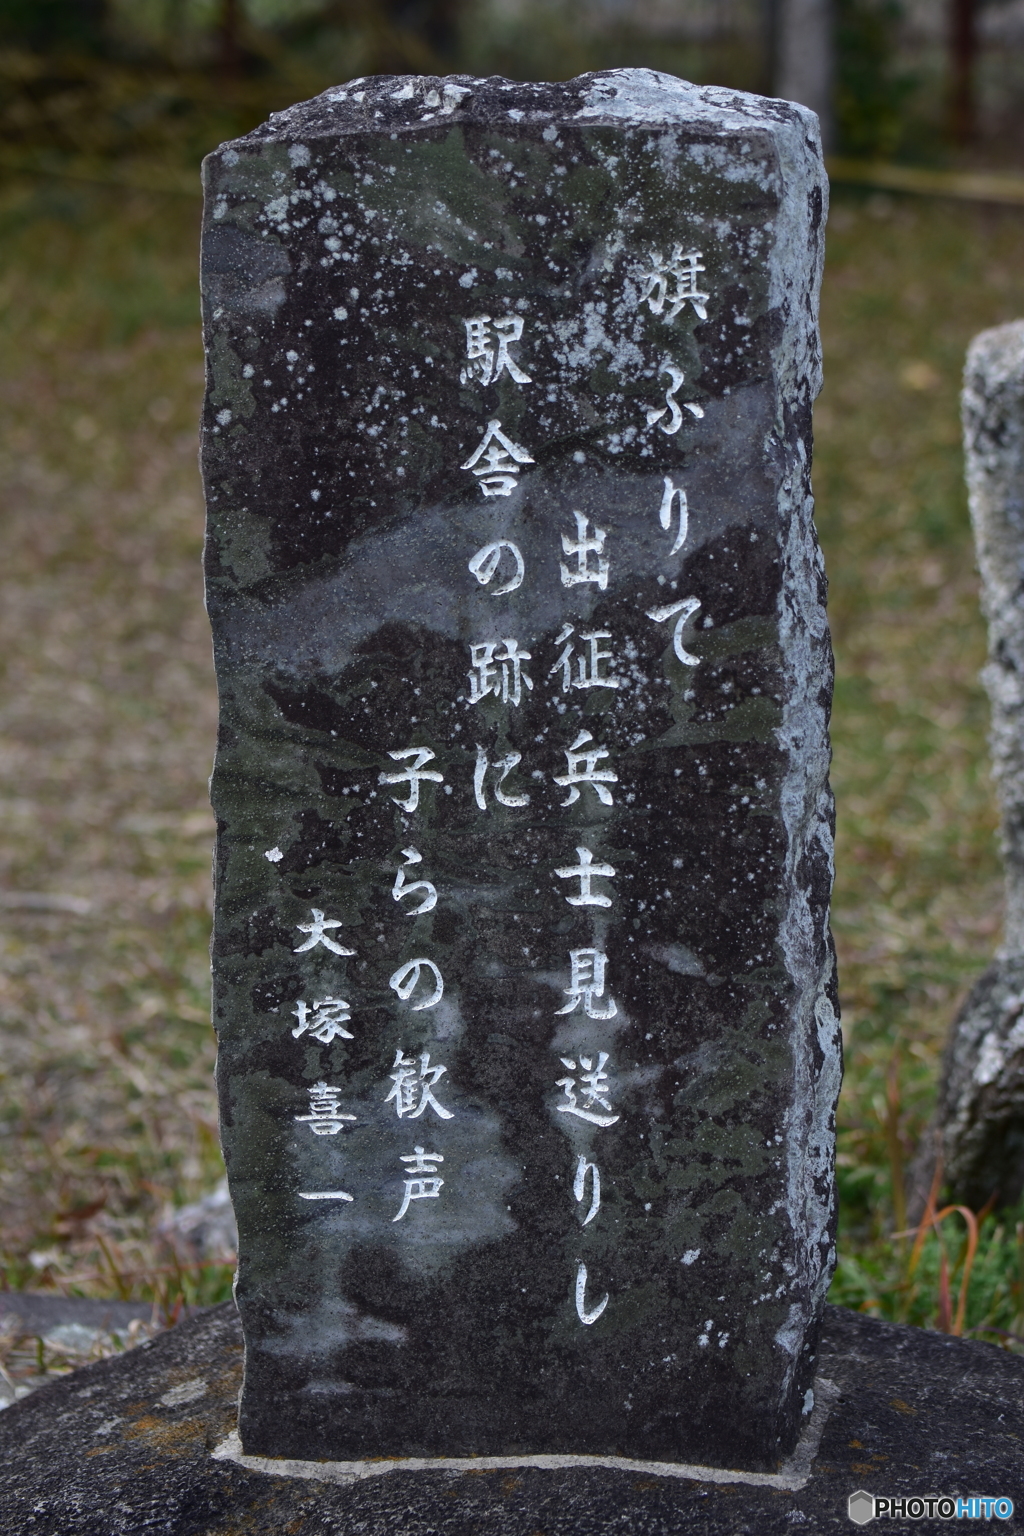 旗ふりて
出征兵士見送りし
駅舎の跡に
子らの歓声
大塚喜一
PHOTOHITO